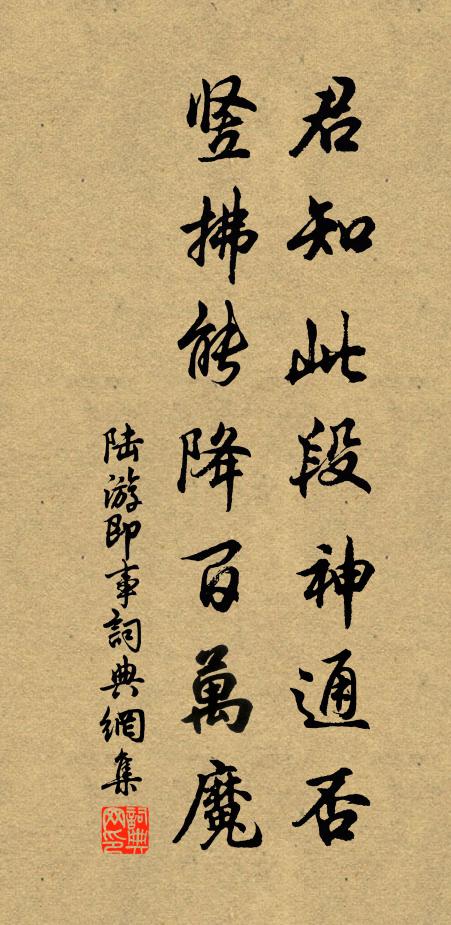 君知此段神通否
竖拂能降百萬魔
陆游即事詞典網集
詞典網印